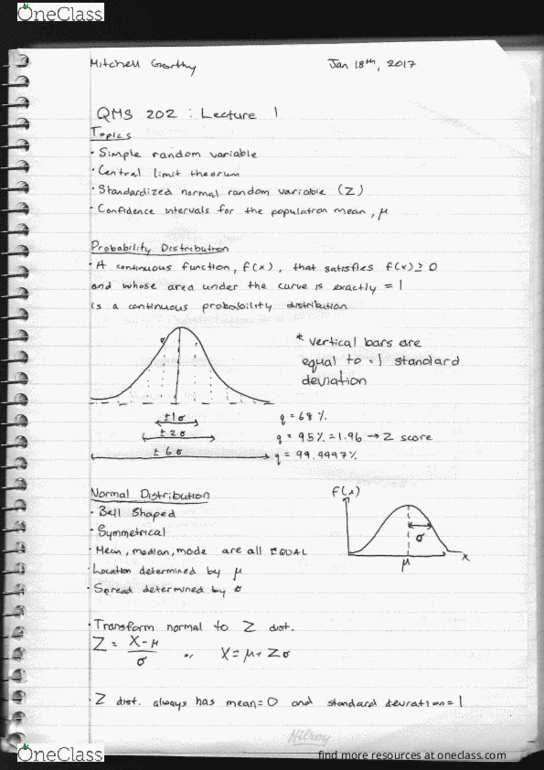 OneClass
Mitchell Gorthy Jan 18th, 2017
QMS 202 : Lecture 1
Topics
· Simple random variable
· Central limit theorum
· Standardized normal random variable (Z)
· Confidence intervals for the population mean, μ
Probability Distribution
· A continuous function, f(x), that satisfies f(x) ≥ 0
and whose area under the curve is exactly = 1
is a continuous probability distribution
* vertical bars are
equal to ±1 standard
deviation
±1σ q = 68%
±2σ q = 95% = 1.96 → Z score
±6σ q = 99.9997%
Normal Distribution
· Bell Shaped
· Symmetrical
· Mean, median, mode are all EQUAL
· Location determined by μ
· Spread determined by σ
f(x)
σ
μ
x
· Transform normal to Z dist.
Z = X-μ / σ or X = μ + Zσ
· Z dist. always has mean = 0 and standard deviation = 1
Hilroy
OneClass
find more resources at oneclass.com